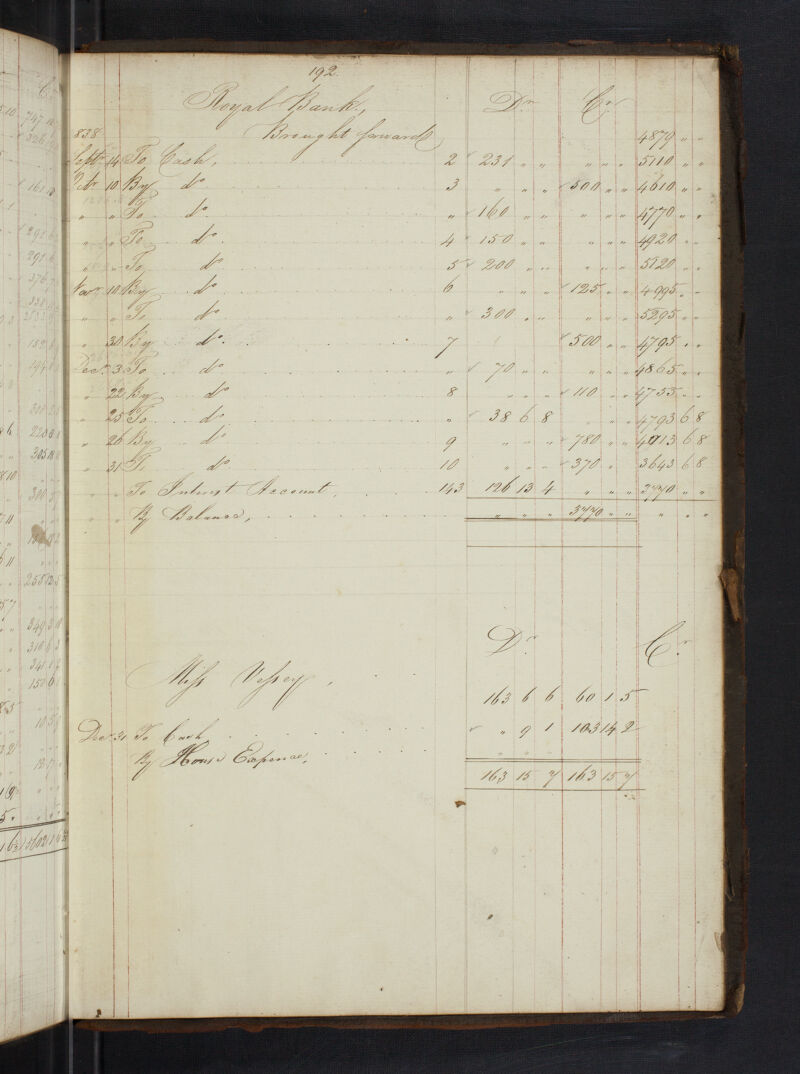 192
Royal Bank, Dr Cr
1838 Brought forward 4879 " "
Septr 14 To Cash, 2 231 " " " " " 5110 " "
Octr 10 By do 3 " " " 500 " " 4610 " "
" " To do " 160 " " " " " 4770 " "
" " To do 4 150 " " " " " 4920 " "
" " To do 5 200 " " " " " 5120 " "
Novr 10 By do 6 " " " 125 " " 4995 " "
" " To do " 300 " " " " " 5295 " "
" 30 By do 7 500 " " 4795 " "
Decr 3 To do " 70 " " " " " 4865 " "
" 22 By do 8 " " " 110 " " 4755 " "
" 25 To do " 38 6 8 " " 4793 6 8
" 26 By do 9 " " " 780 " " 4013 6 8
" 31 To do 10 " " " 370 " 3643 6 8
" " To Interest Account, 143 126 13 4 " " " 3770 " "
" " By Balance, " " " 3770 " " " " "
Dr Cr
Miss Vessey, 163 6 6 60 1 5
Decr 31 To Cash " 9 1 103 14 2
By House Expence,
163 15 7 163 15 7